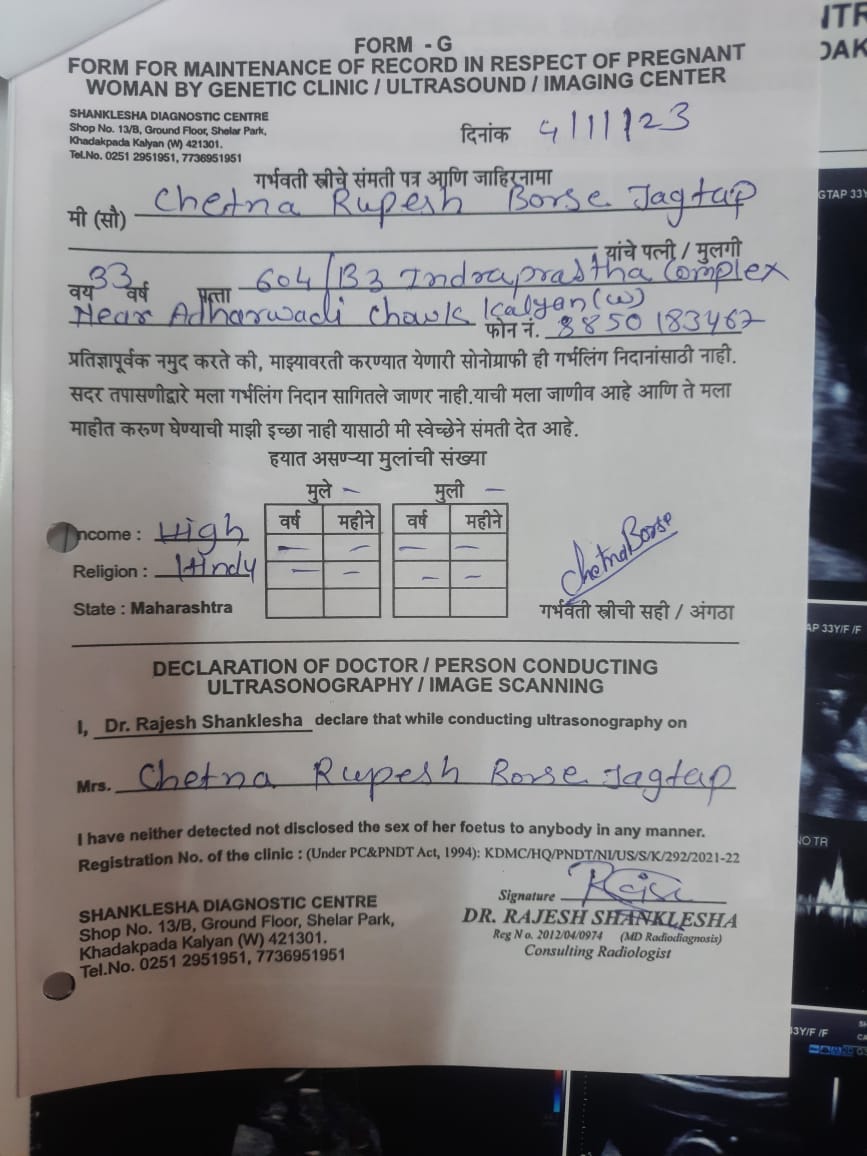 FORM - G
FORM FOR MAINTENANCE OF RECORD IN RESPECT OF PREGNANT
WOMAN BY GENETIC CLINIC / ULTRASOUND / IMAGING CENTER
SHANKLESHA DIAGNOSTIC CENTRE
Shop No. 13/B, Ground Floor, Shelar Park,
Khadakpada Kalyan (W) 421301.
Tel.No. 0251 2951951, 7736951951
दिनांक 4/11/23
गर्भवती स्त्रीचे संमती पत्र आणि जाहिरनामा
मी (सौ) Chetna Rupesh Borse Jagtap
यांचे पत्नी / मुलगी
वय 33 वर्ष पत्ता 604/B3 Indraprastha Complex
Near Adharwadi Chowk Kalyan (W) फोन नं. 8850183467
प्रतिज्ञापूर्वक नमुद करते की, माझ्यावरती करण्यात येणारी सोनोग्राफी ही गर्भलिंग निदानांसाठी नाही.
सदर तपासणीद्वारे मला गर्भलिंग निदान सागितले जाणर नाही.याची मला जाणीव आहे आणि ते मला
माहीत करुण घेण्याची माझी इच्छा नाही यासाठी मी स्वेच्छेने संमती देत आहे.
हयात असण्या मुलांची संख्या
मुले – मुली –
वर्ष महीने वर्ष महीने
– – – –
– – – –
ncome : High
Religion : Hindu
State : Maharashtra
Chetna Borse
गर्भवती स्त्रीची सही / अंगठा
DECLARATION OF DOCTOR / PERSON CONDUCTING
ULTRASONOGRAPHY / IMAGE SCANNING
I, Dr. Rajesh Shanklesha declare that while conducting ultrasonography on
Mrs. Chetna Rupesh Borse Jagtap
I have neither detected not disclosed the sex of her foetus to anybody in any manner.
Registration No. of the clinic : (Under PC&PNDT Act, 1994): KDMC/HQ/PNDT/NI/US/S/K/292/2021-22
SHANKLESHA DIAGNOSTIC CENTRE
Shop No. 13/B, Ground Floor, Shelar Park,
Khadakpada Kalyan (W) 421301.
Tel.No. 0251 2951951, 7736951951
Signature
DR. RAJESH SHANKLESHA
Reg No. 2012/04/0974 (MD Radiodiagnosis)
Consulting Radiologist
NTR
DAK
GTAP 33Y
AP 33Y/F /F
NO TR
33Y/F /F